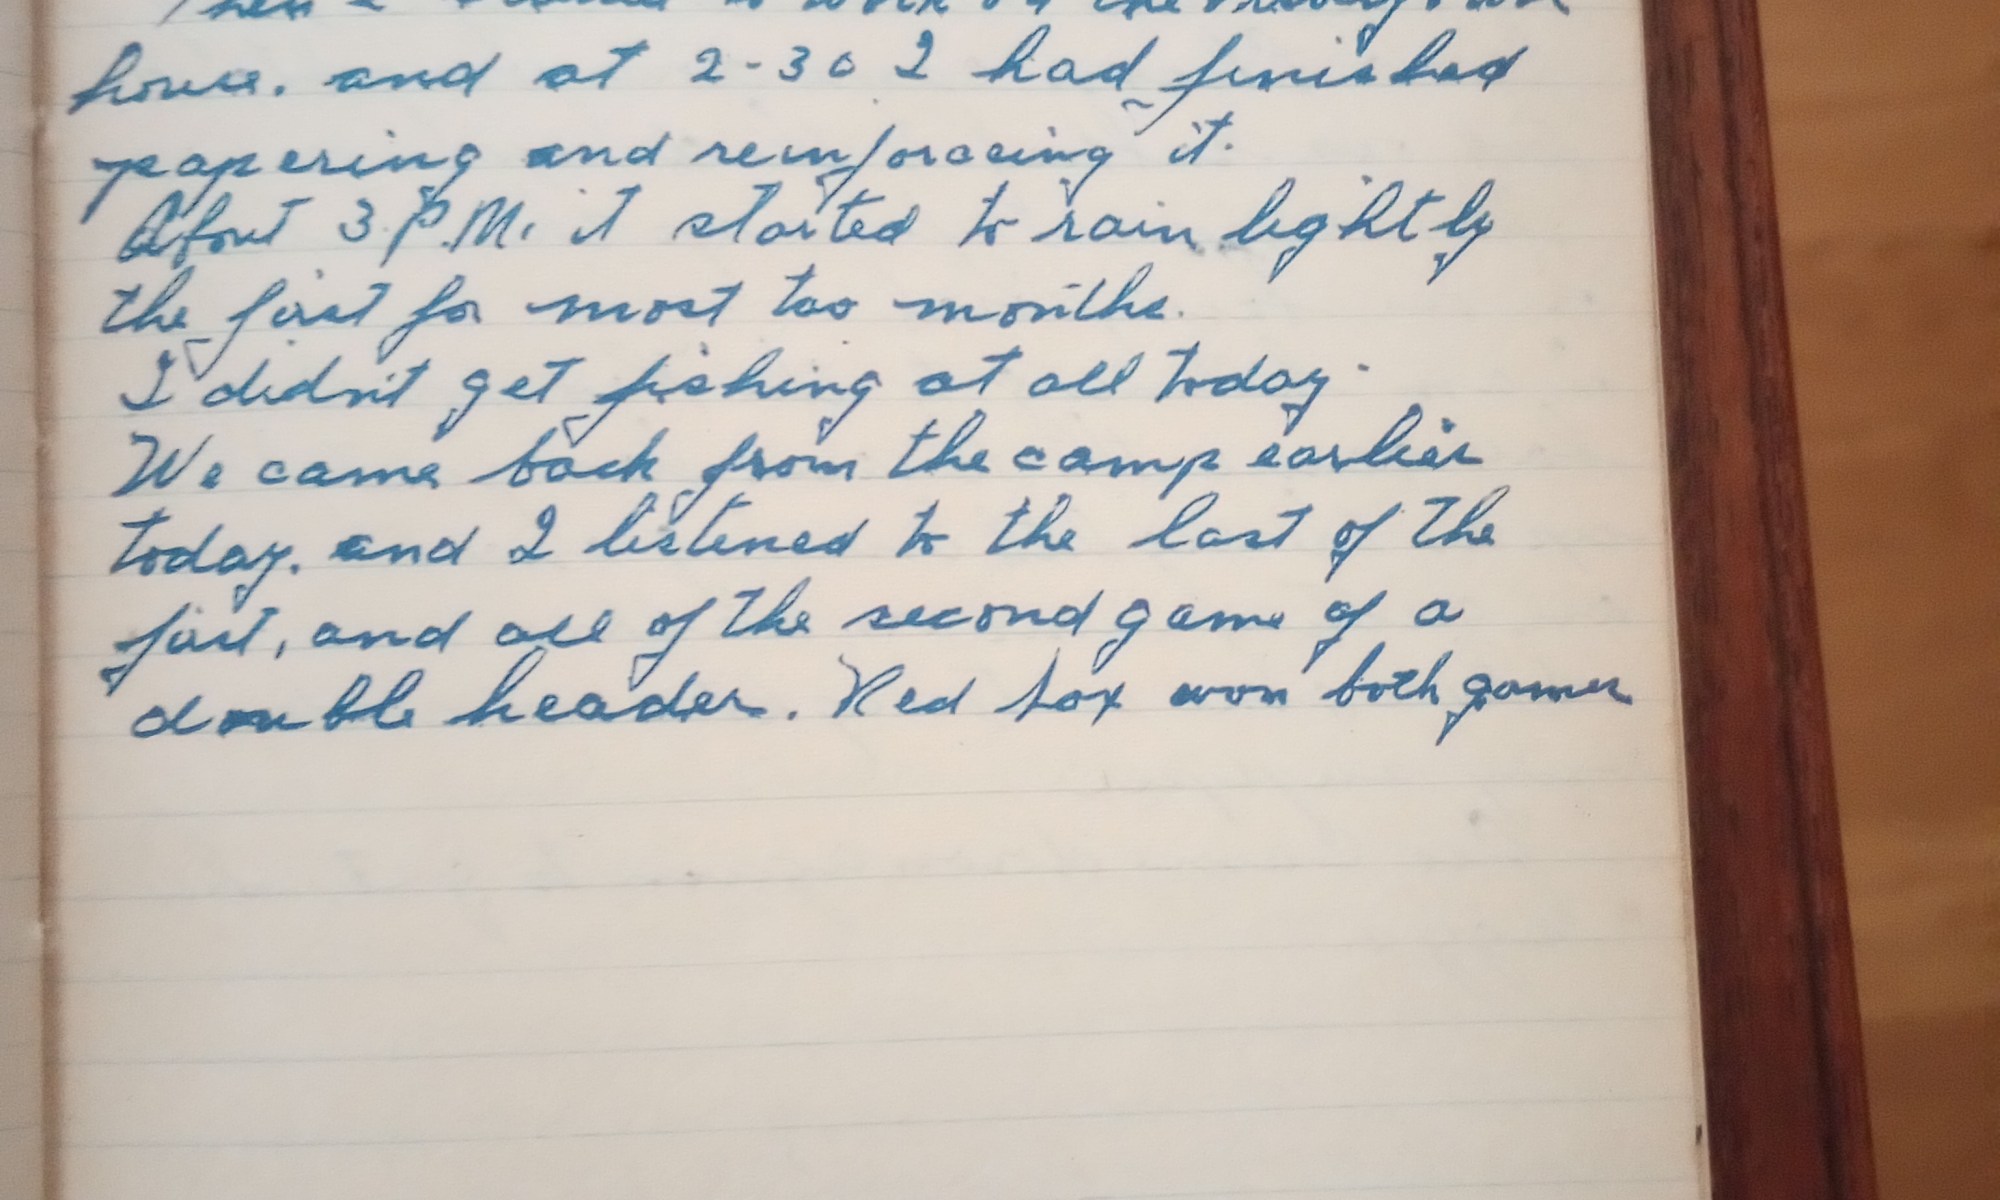 Then I started to work on the
house. and at 2-30 I had finished
papering and reinforceing it.
About 3 P.M. it started to rain lightly
the first for most too months.
I didn't get fishing at all today.
We came back from the camp earlier
today. and I listened to the last of the
first, and all of the second game of a
double header. Red Sox won both games